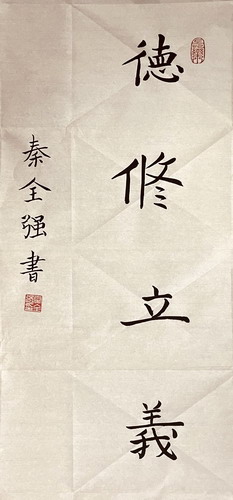 德修立義
秦全强書